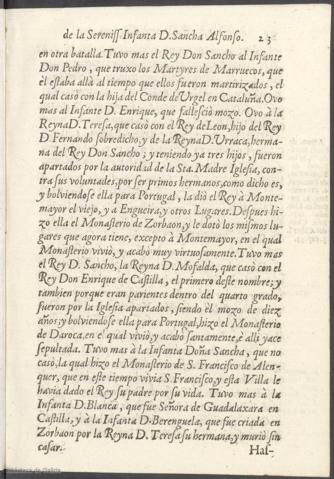 de la Sereniss. Infanta D. Sancha Alfonso. 23
en otra batalla. Tuvo mas el Rey Don Sancho al Infante
Don Pedro, que truxo los Martyres de Marruecos, que
èl estaba allà al tiempo que ellos fueron martirizados, el
qual casò con la hija del Conde de Urgel en Cataluña. Ovo
mas al Infante D. Enrique, que fallesciò mozo. Ovo à la
Reyna D. Teresa, que casò con el Rey de Leon, hijo del Rey
D. Fernando sobredicho, y de la Reyna D. Urraca, herma-
na del Rey Don Sancho; y teniendo ya tres hijos, fueron
apartados por la autoridad de la Sta. Madre Iglesia, con-
tra sus voluntades, por ser primos hermanos, como dicho es,
y bolviendose ella para Portugal, la diò el Rey à Monte-
mayor el viejo, y a Engueira, y otros Lugares. Despues hi-
zo ella el Monasterio de Zorbaon, y le dotò los mismos lu-
gares que agora tiene, excepto à Montemayor, en el qual
Monasterio viviò, y acabò muy virtuosamente. Tuvo mas
el Rey D. Sancho, la Reyna D. Mofalda, que casò con el
Rey Don Enrique de Castilla, el primero deste nombre; y
tambien porque eran parientes dentro del quarto grado,
fueron por la Iglesia apartados, siendo èl mozo de diez
años; y bolviendose ella para Portugal, hizo el Monasterio
de Daroca, en el qual viviò, y acabò santamente, è alli yace
sepultada. Tuvo mas à la Infanta Doña Sancha, que no
casò, la qual hizo el Monasterio de S. Francisco de Alen-
quer, que en este tiempo vivia S. Francisco, y esta Villa le
havia dado el Rey su padre por su vida. Tuvo mas à la
Infanta D. Blanca, que fue Señora de Guadalaxara en
Castilla, y à la Infanta D. Berenguela, que fue criada en
Zorbaon por la Reyna D. Teresa su hermana, y muriò sin
casar.
Hal-